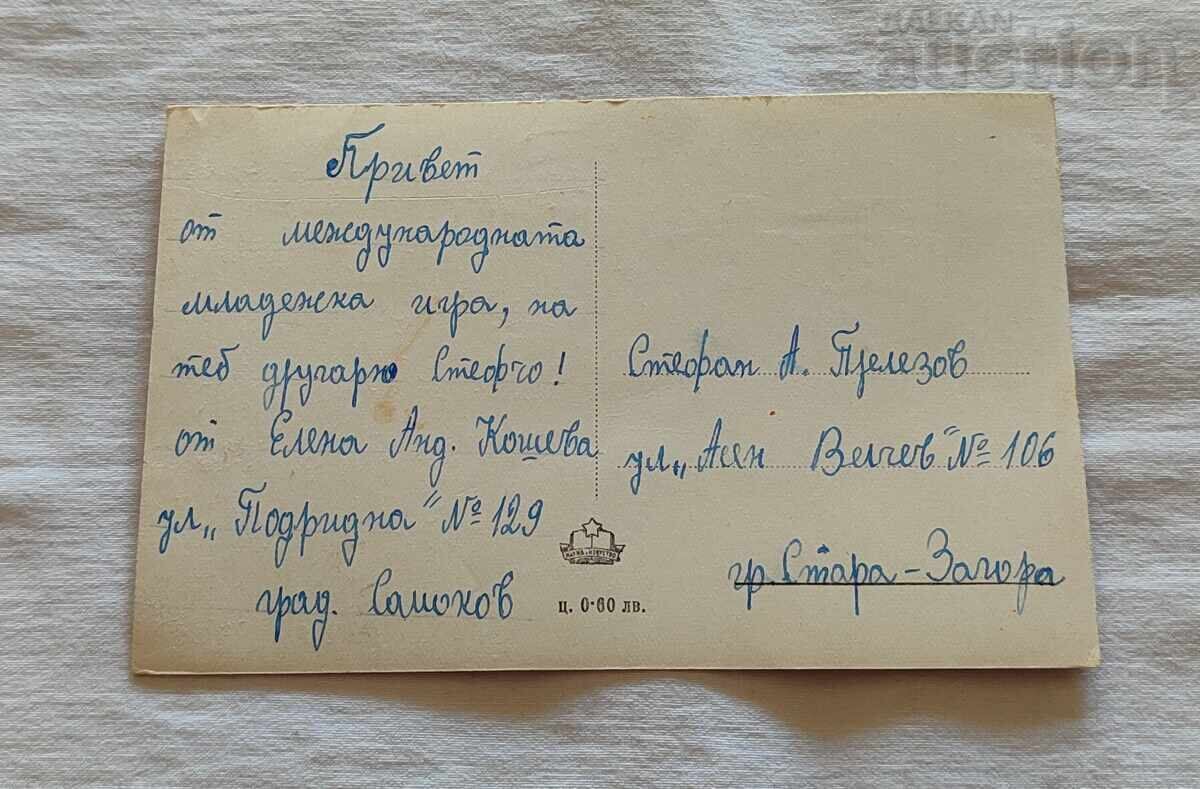 BALKAN
auction
Привет
от международната
младежка игра, на
теб другарю Стефчо!
от Елена Анд. Кошева
ул „Подридна" № 129
град. Самоков
НАУКА и ИЗКУСТВО
ц. 0·60 лв.
Стефан А. Пелезов
ул „Асен Велчев" № 106
гр. Стара-Загора